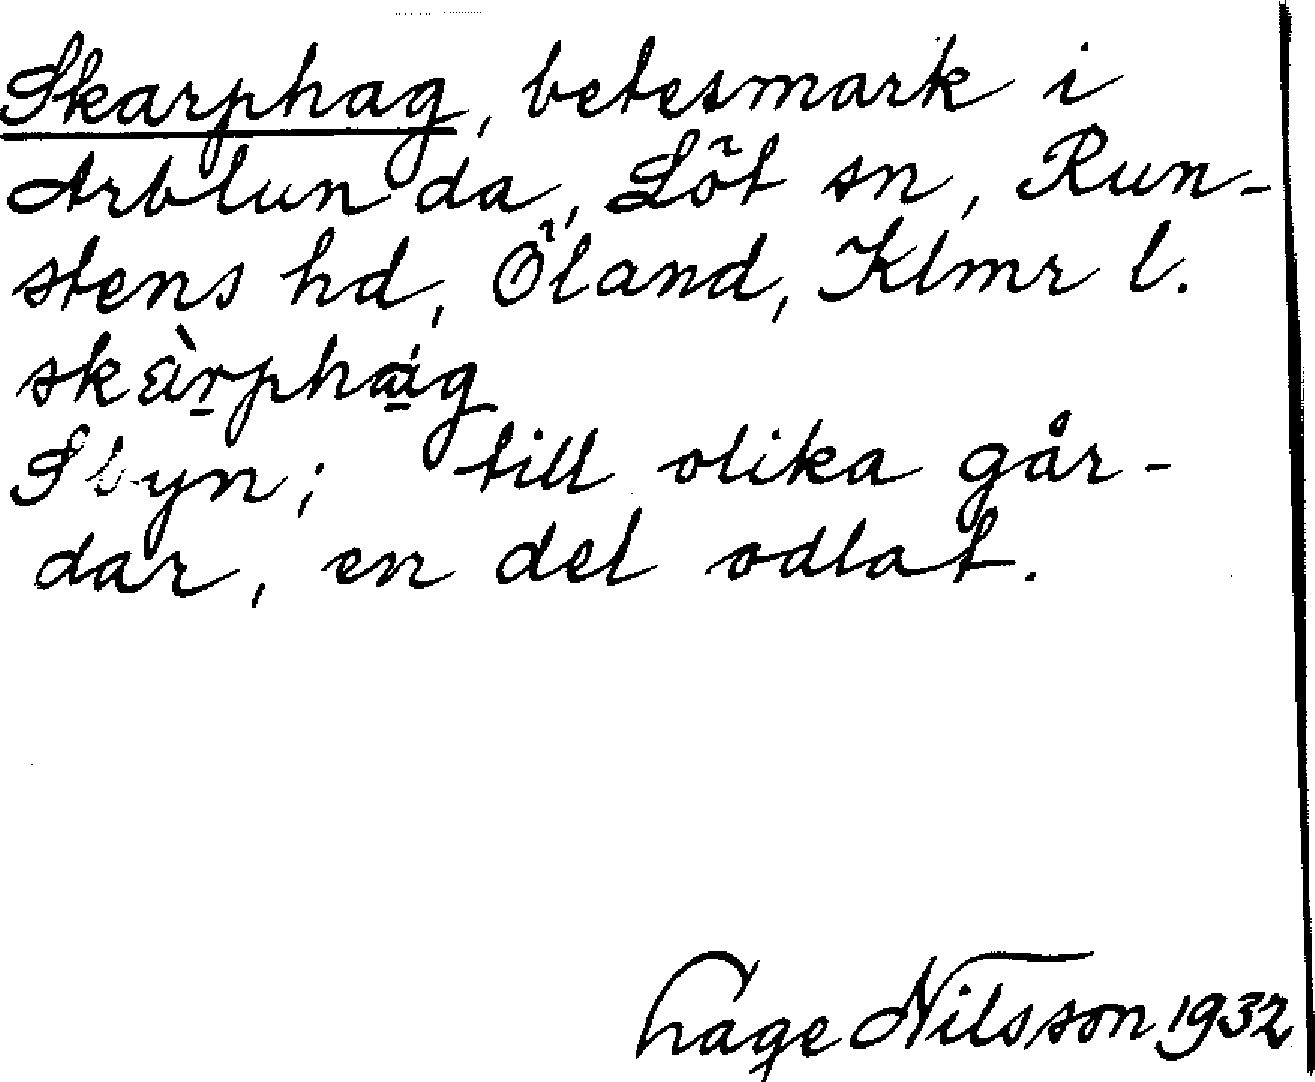 Skarphag, betesmark i
Arblunda, Löt sn, Run-
stens hd, Öland, Klmr l.
skàrphág
till olika går-
dar, en del odlat.
Nilsson 1932